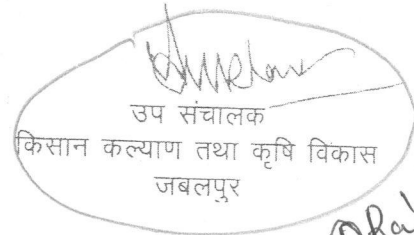 उप संचालक
किसान कल्याण तथा कृषि विकास
जबलपुर